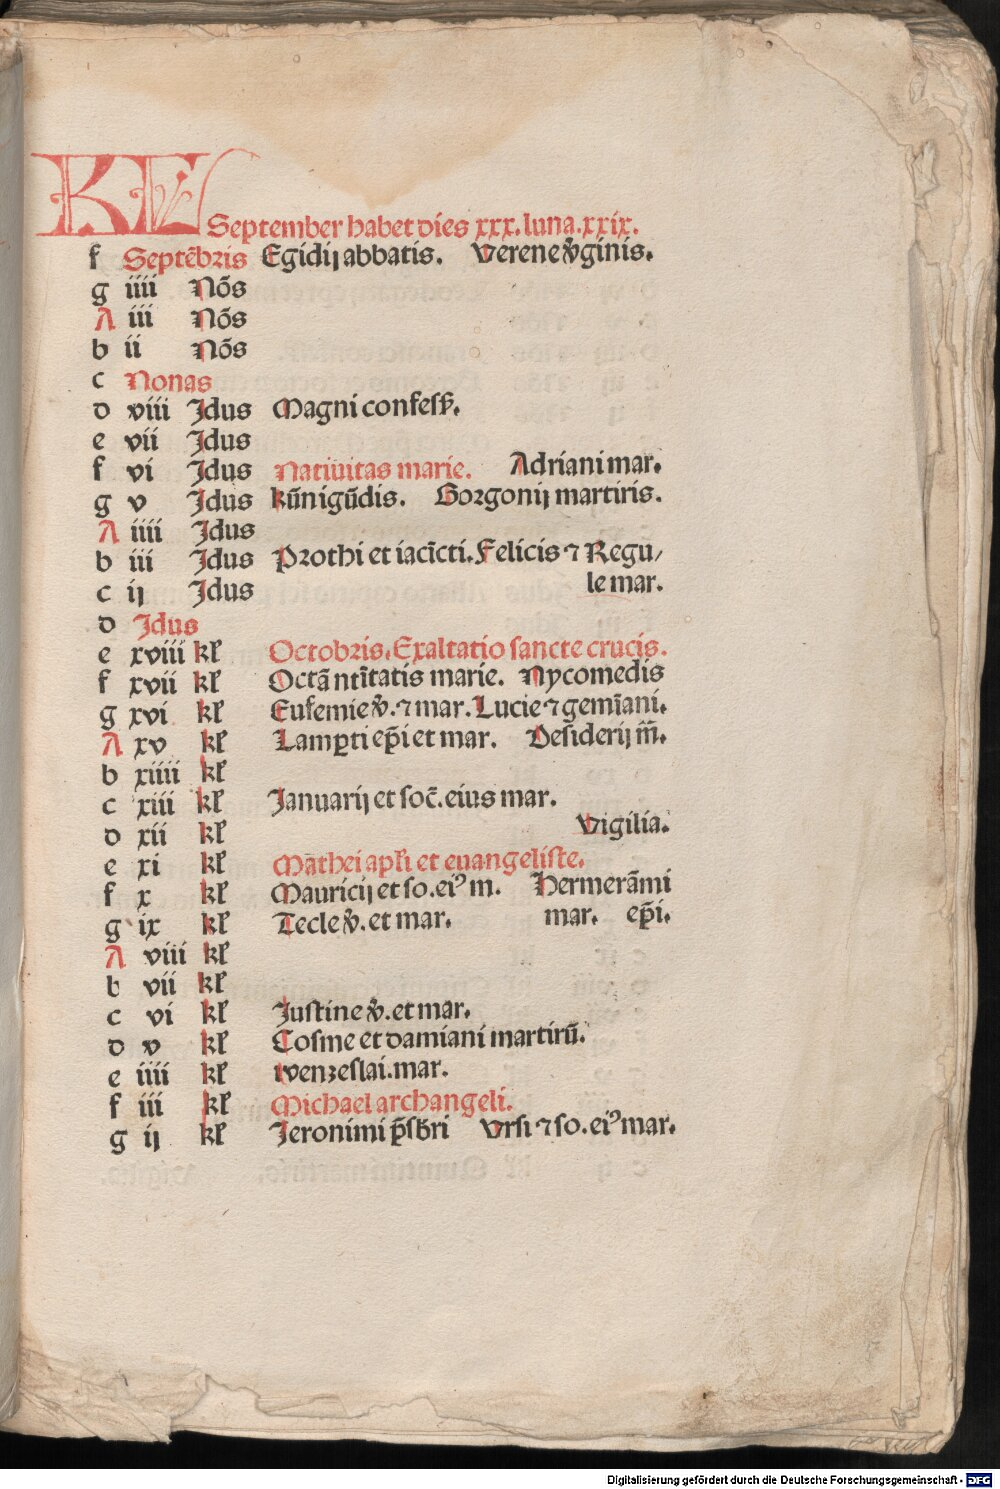 KL September habet dies xxx. luna. xxix.
f Septēbris Egidij abbatis. Verene v̄ginis.
g iiii Nōs
A iii Nōs
b ii Nōs
c Nonas
d viii Jdus Magni confess̄.
e vii Jdus
f vi Jdus Natiuitas marie. Adriani mar.
g v Jdus kūnigūdis. Gorgonij martiris.
A iiii Jdus
b iii Jdus Prothi et iacīcti. Felicis ⁊ Regu/
c ij Jdus le mar.
d Jdus
e xviii kl̓ Octobris. Exaltatio sancte crucis.
f xvii kl̓ Octā ntītatis marie. Nycomedis
g xvi kl̓ Eufemie v̄. ⁊ mar. Lucie ⁊ gemīani.
A xv kl̓ Lamꝑti ep̄i et mar. Desiderij m̄.
b xiiii kl̓
c xiii kl̓ Januarij et soc̄. eius mar.
d xii kl̓ Vigilia.
e xi kl̓ Mathei apl̓i et euangeliste.
f x kl̓ Mauricij et so. eiꝰ m. Hermerāmi
g ix kl̓ Tecle v̄. et mar. mar. ep̄i.
A viii kl̓
b vii kl̓
c vi kl̓ Justine v̄. et mar.
d v kl̓ Cosme et damiani martirū.
e iiii kl̓ wenzeslai. mar.
f iii kl̓ Michael archangeli.
g ij kl̓ Jeronimi p̄sbri Vrsi ⁊ so. eiꝰ mar.
Digitalisierung gefördert durch die Deutsche Forschungsgemeinschaft - DFG